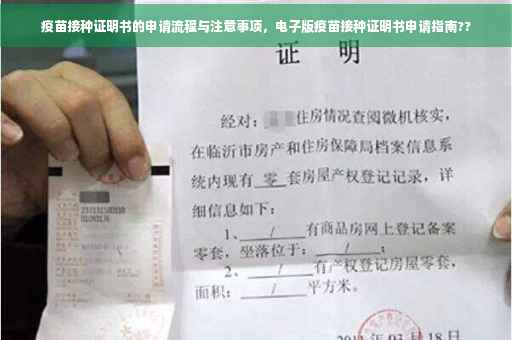 疫苗接种证明书的申请流程与注意事项，电子版疫苗接种证明书申请指南??
证 明
经对：住房情况查阅微机核实，
在临沂市房产和住房保障局档案信息系
统内现有 零 套房屋产权登记记录，详
细信息如下：
1、 / 有商品房网上登记备案
零套，坐落位于： / ；
2、 / 有产权登记房屋零套，
面积： / 平方米。
03月18日